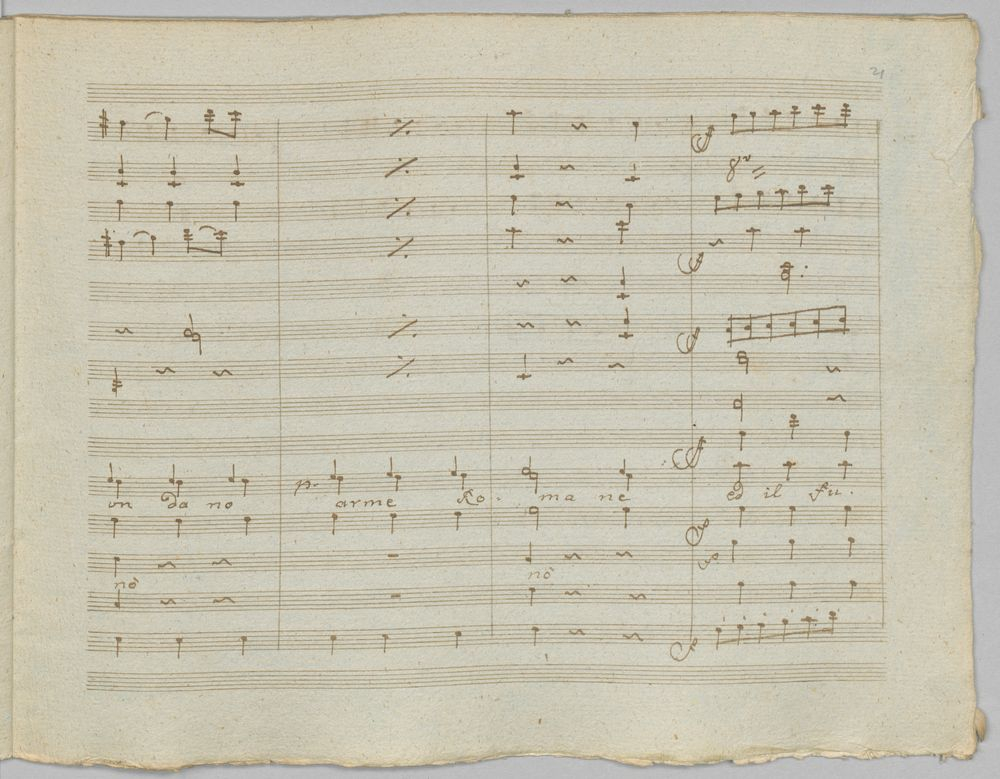 21
8va
on da no p. arme Ro. ma ne ed il fu.
nò nò